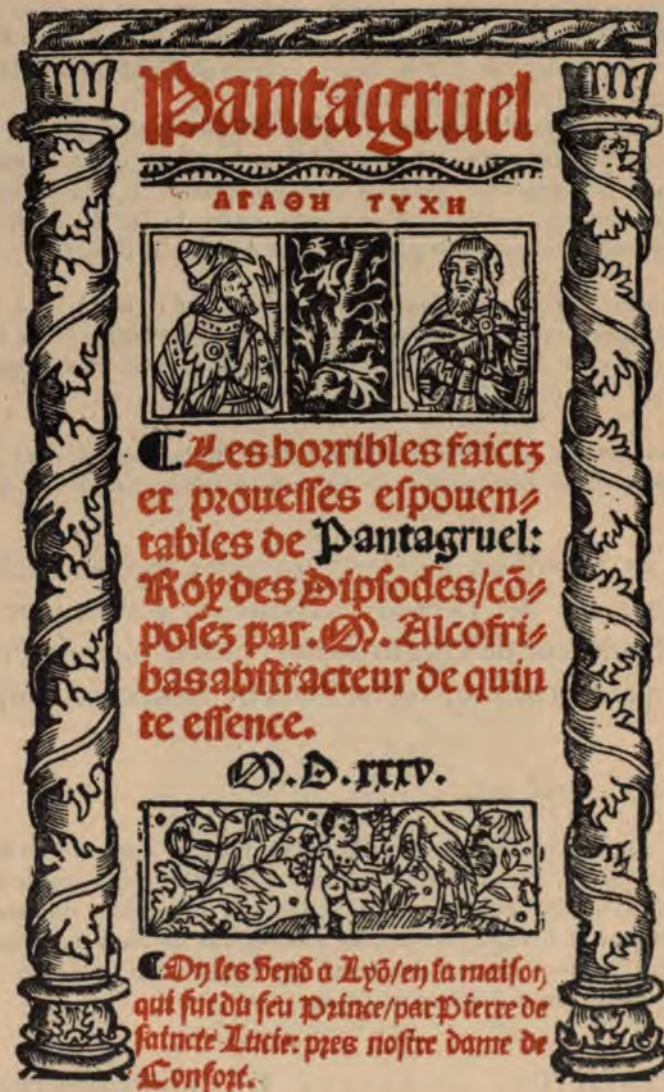 Pantagruel
ΑΓΑΘΗ ΤΥΧΗ
¶ Les horribles faictz
et prouesses espouen/
tables de Pantagruel:
Roy des Dipsodes/cõ/
posez par. M. Alcofri/
bas abstracteur de quin
te essence.
M.D.xxxv.
¶ On les vend a Lyõ/en la maison
qui fut du feu Prince/par Pierre de
saincte Lucie: pres nostre dame de
Confort.